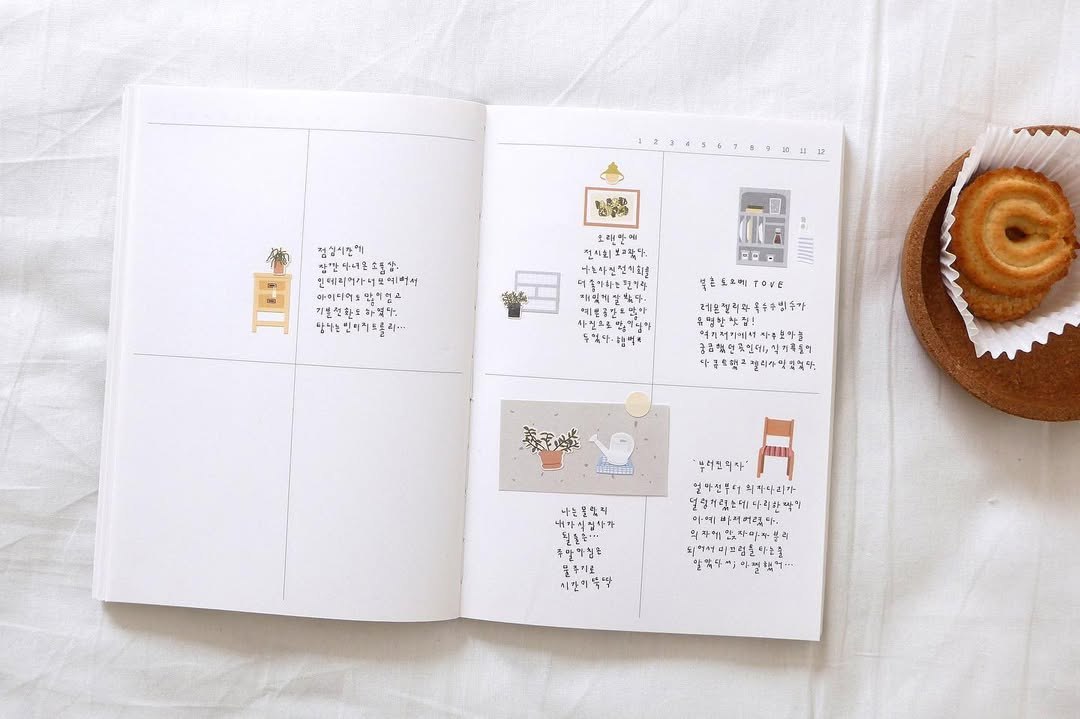 점심시간에
잠깐 다녀온 소품샵.
인테리어가 너무 예뻐서
아이디어도 많이 얻고
기분전환도 하였다.
탐나는 빈티지트롤리…
1 2 3 4 5 6 7 8 9 10 11 12
오랜만에
전시회 보고왔다.
나는 사진전시회를
더 좋아하는 편이라
재밌게 잘 봤다.
예쁜 공간도 많아
사진으로 많이 담아
두었다. 햄벅
북촌 토오베 TOVE
레몬젤리와 옥수수빙수가
유명한 찻집!
여기저기에서 자주 보아 늘
궁금했던 곳인데, 식기류들이
다 큐트했고 젤리 맛있었다.
나는 몰랐지
내가 식집사가
될 줄은…
주말 아침은
물주기로
시간이 뚝딱
'부러진 의자'
얼마전부터 의자다리가
덜렁거렸는데 다리 한짝이
아예 빠져버렸다.
의자에 앉자마자 분리
되어서 미끄럼틀 타는줄
알았다^^; 아찔했어…